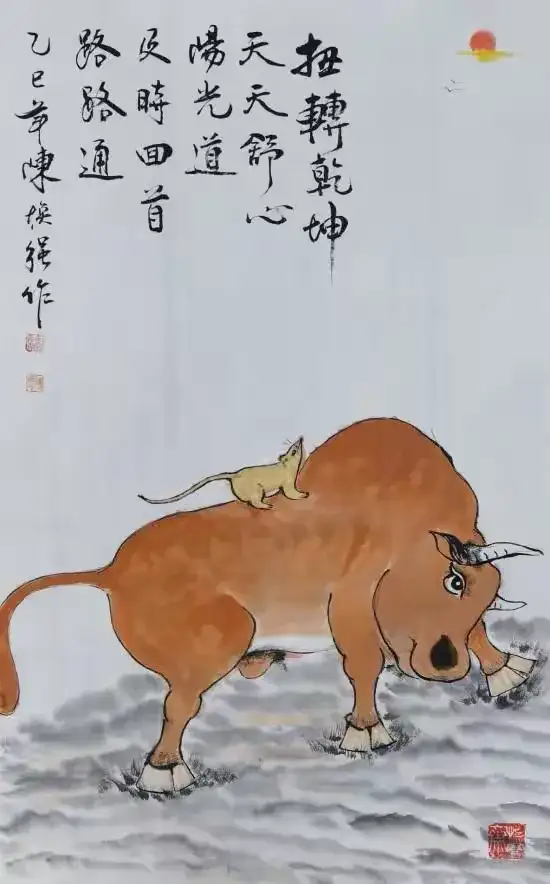 扭轉乾坤
天天舒心
陽光道
及時回首
路路通
乙巳年陳煥强作